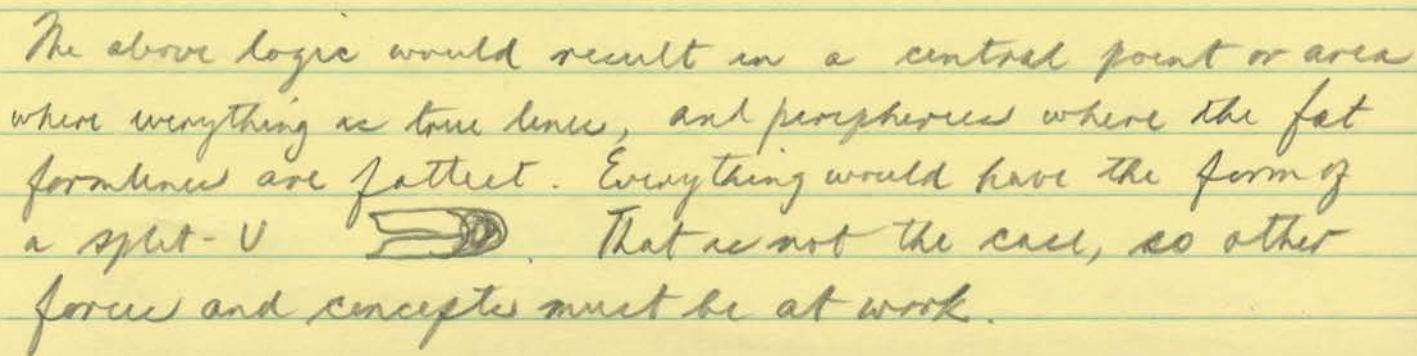 The above logic would result in a central point or area
where everything is true lines, and peripheries where the fat
formlines are fattest. Everything would have the form of
a split-U . That is not the case, so other
forces and concepts must be at work.